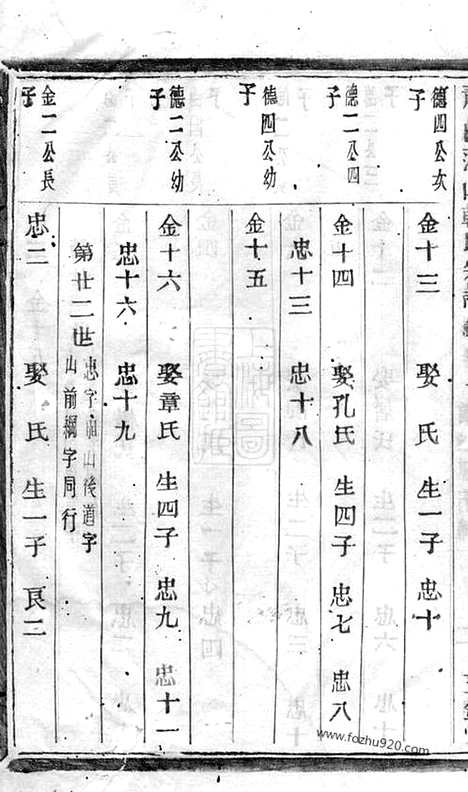 德四公次子 金十三 娶 氏 生一子 忠十
德二公四子 金十四 娶孔氏 生四子 忠七 忠八
忠十三 忠十八
德四公幼子 金十五
德二公幼子 金十六 娶章氏 生四子 忠九 忠十一
忠十六 忠十九
第廿二世 忠字 山後 字
山前 字同行
金二公長子 忠三 娶 氏 生一子 良二
www.fozhu920.com